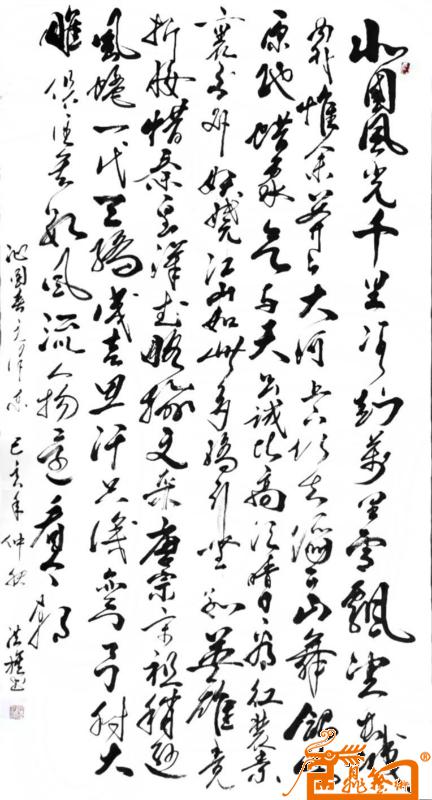 北国风光千里冰封万里雪飘望长城
内外惟余莽莽大河上下顿失滔滔山舞银蛇
原驰蜡象欲与天公试比高须晴日看红装素
裹分外妖娆江山如此多娇引无数英雄竞
折腰惜秦皇汉武略输文采唐宗宋祖稍逊
风骚一代天骄成吉思汗只识弯弓射大
雕俱往矣数风流人物还看今朝
沁园春毛泽东 己亥年仲秋 书